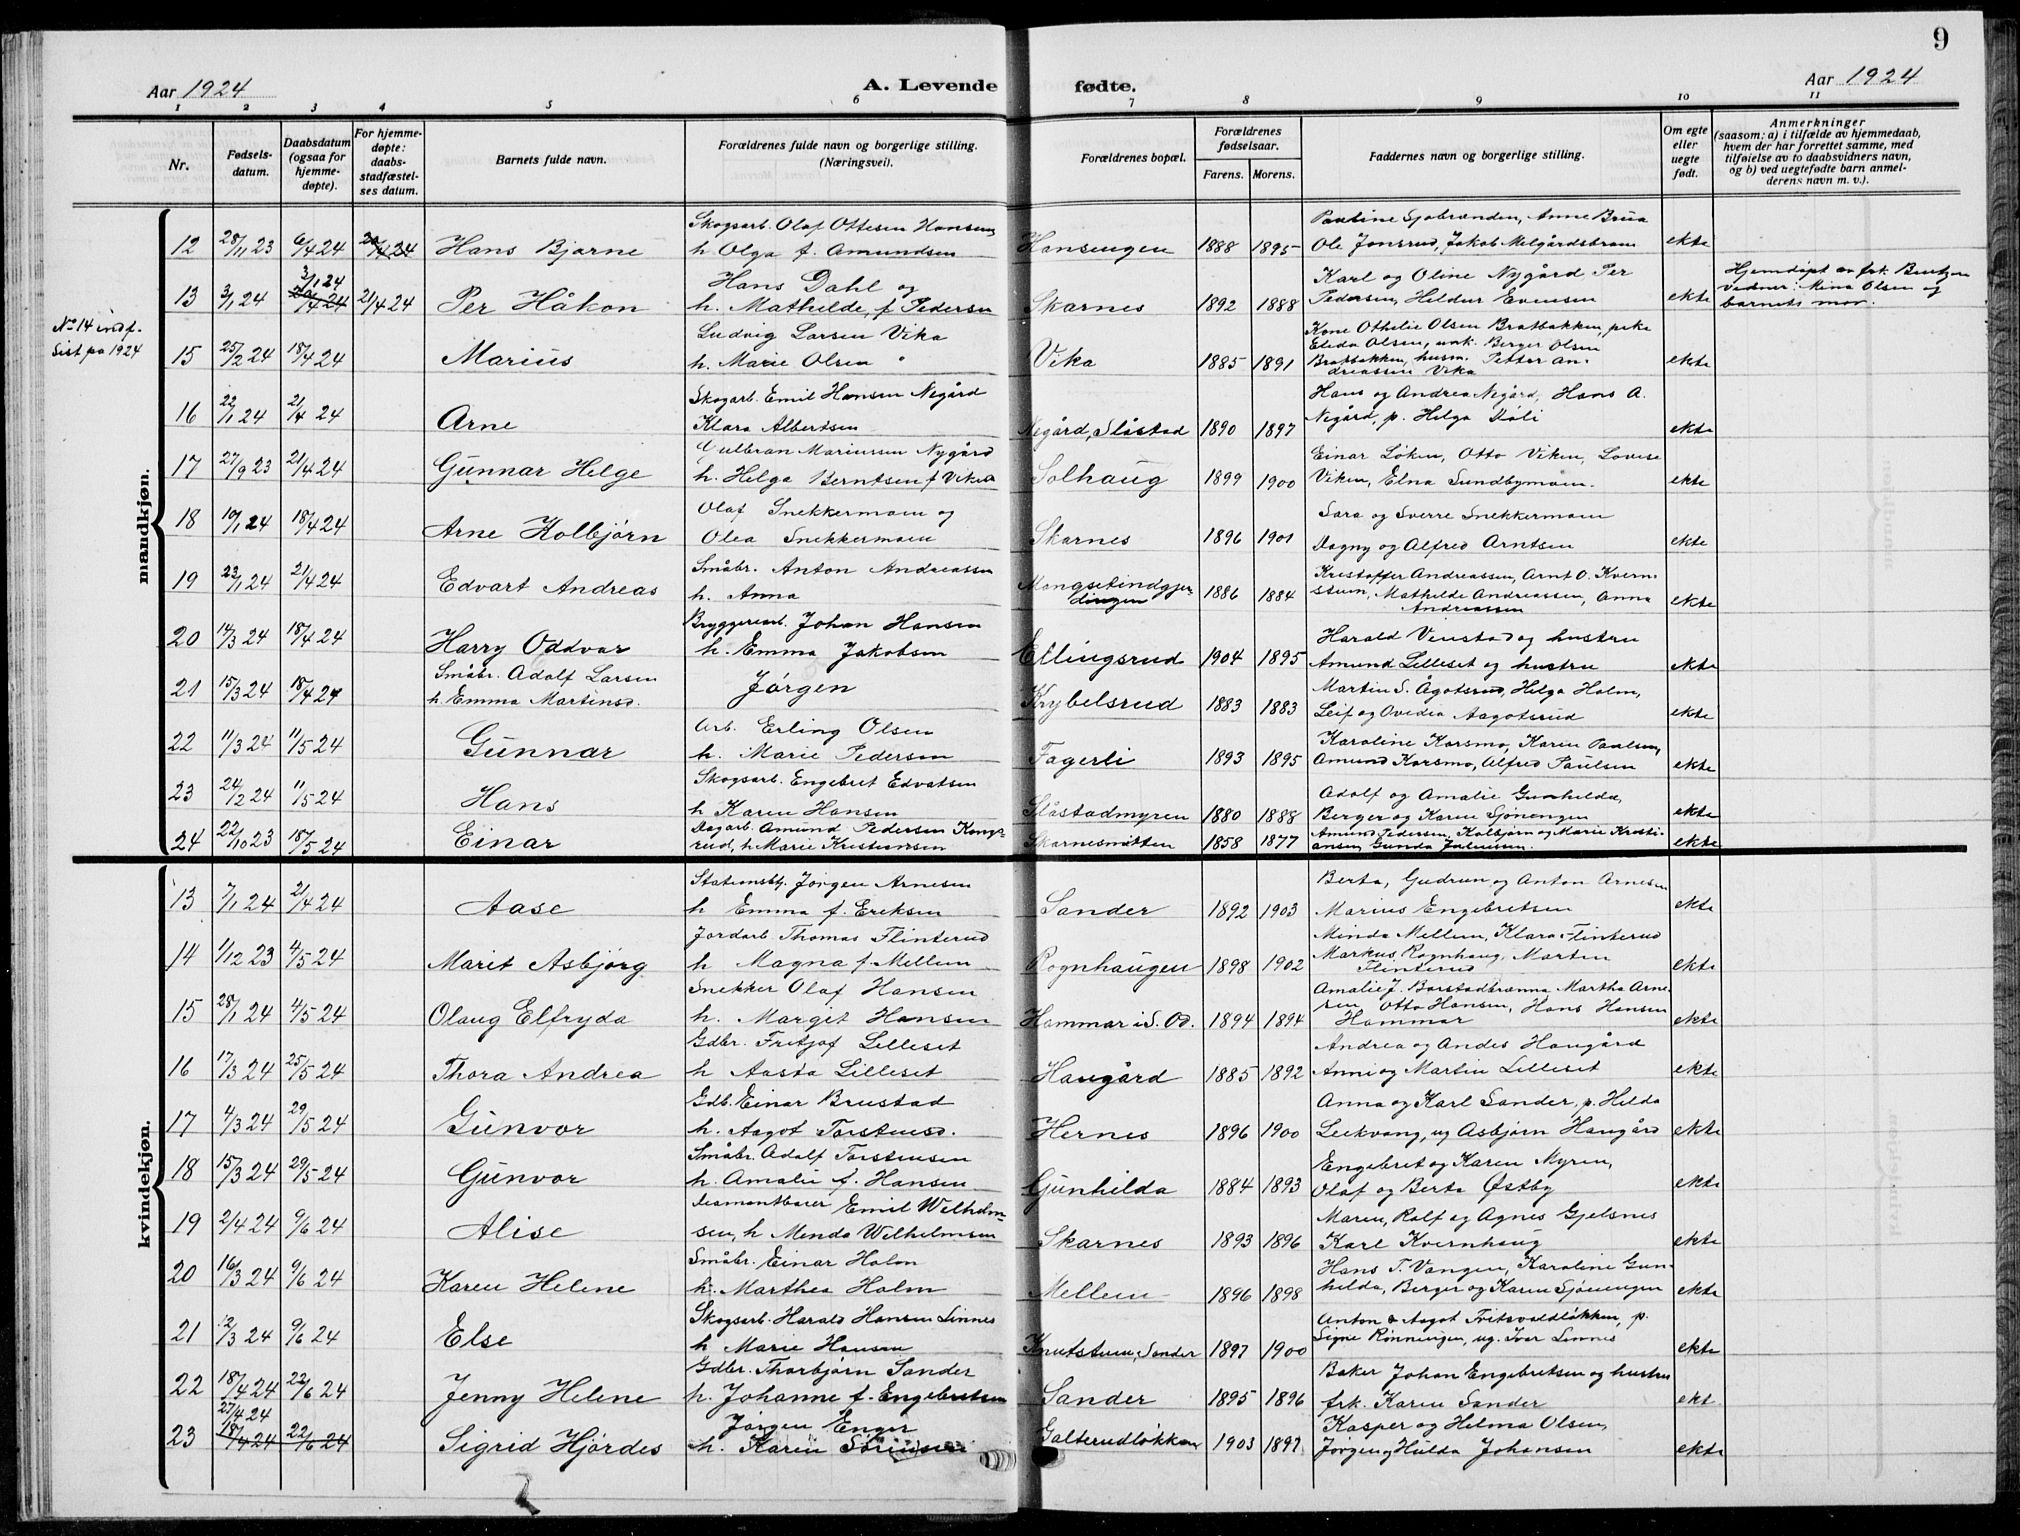 9
Aar 1924 A. Levende fødte. Aar 1924
1 2 3 4 5 6 7 8 9 10 11
Nr. Fødsels-datum. Daabsdatum (ogsaa for hjemme-døpte). For hjemme-døpte: daabs-stadfæstel-ses datum. Barnets fulde navn. Forældrenes fulde navn og borgerlige stilling. (Næringsvei). Forældrenes bopæl. Forældrenes fødselsaar. Farens. Morens. Faddernes navn og borgerlige stilling. Om egte eller uegte født. Anmerkninger (saasom: a) i tilfælde av hjemmedaab, hvem der har forrettet samme, med tilføielse av to daabsvidners navn, og b) ved uegtefødte barn anmel-derens navn m. v.).
mandkjøn.
Skogsarb. Olaf Ottesen Hansen Pauline Sjobrenden, Anne Brua
12 28/11 23 6/4 24 20/4 24 Hans Bjarne h. Olga f. Amundsen Hansengen 1888 1895 Ole Jonsrud, Jakob Melgårdsbram ekte
3/1 24 Hans Dahl og Karl og Oline Nygård Per Hjemdøpt av frk. Berntzen
13 3/1 24 20/4 24 21/4 24 Per Håkon h. Mathilde f. Pedersen Skarnes 1892 1888 Pedersen, Heldur Evensen ekte Vidner: Mina Olsen og barnets mor.
No 14 indf. Sist på 1924
Ludvig Larsen Vika Kone Othelie Olsen Bratbakken, pike
15 25/2 24 18/4 24 Marius h. Marie Olsen " Vika 1885 1891 Elida Olsen, unk. Berger Olsen Bratbakken, husm. Petter An-dreassen Vika ekte
Skogarb. Emil Hansen Negård Hans og Andrea Negård, Hans A.
16 22/1 24 21/4 24 Arne Klara Albertsen Negård, Slåstad 1890 1897 Negård, p. Helga Døli ekte
Gulbran Mariussen Nygård Einar Løken, Otto Viken, Lovise
17 27/9 23 21/4 24 Gunnar Helge h. Helga Berntsen f. Viken Solhaug 1899 1900 Viken, Elna Sundbymoen. ekte
Olaf Snekkermoen og Sara og Sverre Snekkermoen
18 10/1 24 18/4 24 Arne Kolbjørn Olea Snekkermoen Skarnes 1896 1901 Dagny og Alfred Arntsen ekte
Småbr. Anton Andreassen Kristoffer Andreassen, Arnt O. Kvern-
19 22/1 24 21/4 24 Edvart Andreas h. Anna 1886 1884 stuen, Mathilde Andreassen, Anna Andreassen ekte
Bryggeriarb. Johan Hansen Harald Venstad og hustru
20 14/3 24 18/4 24 Harry Oddvar h. Emma Jakobsen Ellingsrud 1904 1895 Amund Lilleset og hustru ekte
Småbr. Adolf Larsen Martin S. Ågotsrud, Helga Holm,
21 15/3 24 18/4 24 h. Emma Martinsd. Jørgen Krybelsrud 1883 1883 Leif og Ovedia Aagotsrud ekte
Arb. Erling Olsen Karoline Korsmo, Karen Paulsen,
22 11/3 24 11/5 24 Gunnar h. Marie Pedersen Fagerli 1893 1895 Amund Korsmo, Alfred Paulsen ekte
Skogsarb. Engebret Edvatsen Adolf og Amalie Gunhilda,
23 24/2 24 11/5 24 Hans h Karen Hansen Slåstadmyren 1880 1888 Berger og Karen Sjønengen ekte
Dagarb. Amund Pedersen Kongs- Amund Pedersen, Kolbjørn og Marie Kristi-
24 22/10 23 18/5 24 Einar rud, h. Marie Kristiansen Skarnesmitten 1858 1877 ansen, Gunda Juliussen. ekte
kvindekjøn.
Stationsbtj. Jørgen Arnesen Berta, Gudrun og Anton Arnesen
13 7/1 24 21/4 24 Aase h Emma f. Eriksen Sander 1892 1903 Marius Engebretsen ekte
Jordarb Thomas Flinterud Minda Mellem, Klara Flinterud
14 1/12 23 4/5 24 Marit Asbjørg h Magna f. Mellem Rognhaugen 1898 1902 Markus Rognhaug, Martin Flinterud ekte
Snekker Olaf Hansen Amalie J. Borstadbrænna Martha Arne-
15 28/1 24 4/5 24 Olaug Elfryda h. Margit Hansen Hammar i S. Od. 1894 1894 sen, Otto Hansen, Hans Hansen Hammar ekte
Gdbr. Fritjof Lilleset Andrea og Andes Haugård
16 17/3 24 25/5 24 Thora Andrea h Aasta Lilleset Haugård 1885 1892 Anni og Martin Lilleset ekte
Gdb. Einar Brustad Anna og Karl Sander, p. Hilda
17 4/3 24 29/5 24 Gunvor h. Aagot Torstensd. Hernes 1896 1900 Leekvang, ug Asbjørn Haugård ekte
Småbr. Adolf Torstensen Engebret og Karen Myren,
18 15/3 24 29/5 24 Gunvor h. Amalie f. Hansen Gunhilda 1884 1893 Olaf og Berta Østby ekte
Diamantborer Emil Wilhelm- Maren, Rolf og Agnes Gjelsnes
19 2/4 24 9/6 24 Alise sen, h Menda Wilhelmsen Skarnes 1893 1896 Karl Kvernhaug ekte
Småbr. Einar Holm Hans T. Vangen, Karoline Gun-
20 16/3 24 9/6 24 Karen Helene h. Marthea Holm Mellem 1896 1898 hilda, Berger og Karen Sjønengen ekte
Skogsarb. Harald Hansen Linnes Anton & Aagot Tritsvoldløkken, p.
21 12/3 24 9/6 24 Else h Marie Hansen Knutstuen, Sander 1897 1900 Signe Rønningen, ug. Ivar Linnes ekte
Gdbr. Thorbjørn Sander Baker Johan Engebretsen og hustru
22 18/4 24 22/6 24 Jenny Helene h. Johanne f. Engebretsen Sander 1895 1896 frk. Karen Sander ekt.
27/4 24 Jørgen Enger Kasper og Helma Olsen,
23 18/4 24 22/6 24 Sigrid Hjørdes h. Karen Sørensen Galterudløkken 1903 1897 Jørgen og Hulda Johansen ekte